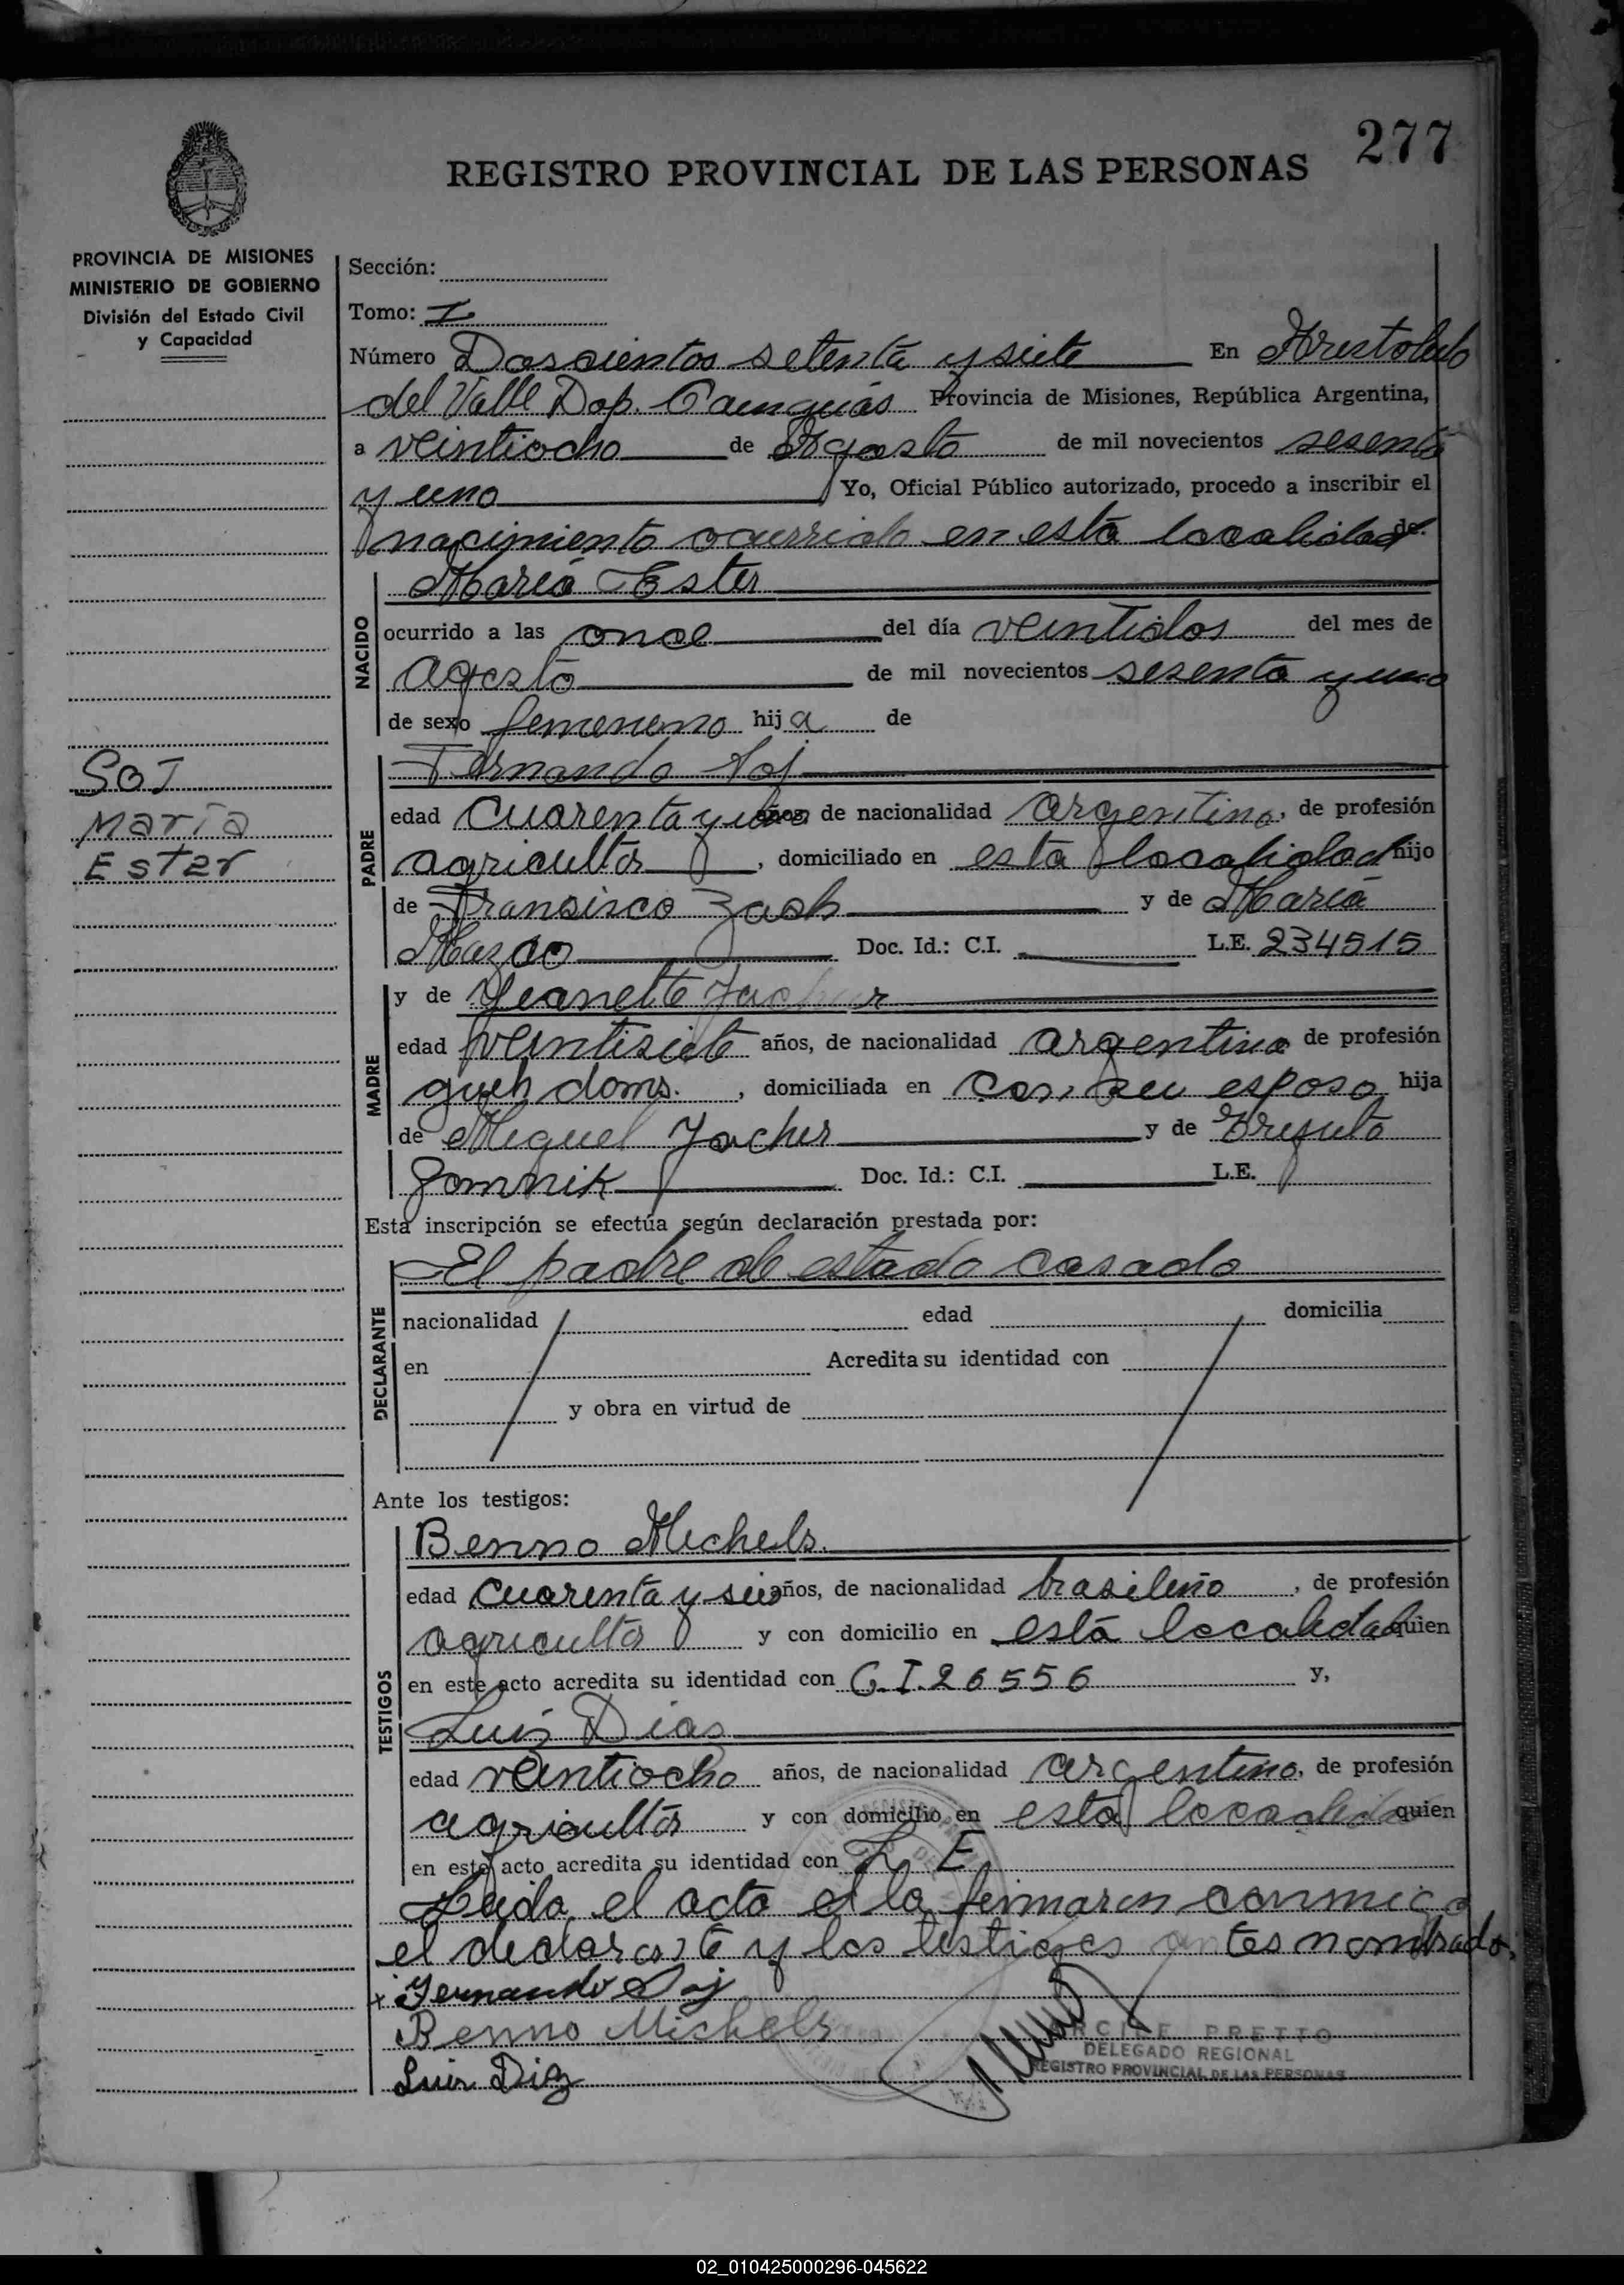 277
REGISTRO PROVINCIAL DE LAS PERSONAS
PROVINCIA DE MISIONES
MINISTERIO DE GOBIERNO
División del Estado Civil
y Capacidad
Sección:
Tomo: I
Número Doscientos setenta y siete En Aristobulo
del Valle Dep. Cainguás Provincia de Misiones, República Argentina,
a veintiocho de Agosto de mil novecientos sesenta
y uno Yo, Oficial Público autorizado, procedo a inscribir el
nacimiento ocurrido en esta localidad de
NACIDO
María Ester
ocurrido a las once del día veintidos del mes de
agosto de mil novecientos sesenta y uno
de sexo femenino hija de
SOJ
María
Ester
PADRE
Fernando Soj
edad cuarenta y años, de nacionalidad argentina, de profesión
agricultor, domiciliado en esta localidad hijo
de Fransisco Zach y de María
Doc. Id.: C.I. L.E. 234515
MADRE
y de Jeanette
edad veintisiete años, de nacionalidad argentina de profesión
queh doms., domiciliada en con su esposo hija
de Miguel Jacher y de
Doc. Id.: C.I. L.E.
Esta inscripción se efectúa según declaración prestada por:
DECLARANTE
El padre de estado casado
nacionalidad edad domicilia
en Acredita su identidad con
y obra en virtud de
Ante los testigos:
TESTIGOS
Benno Michels.
edad cuarenta y seis años, de nacionalidad brasileño, de profesión
agricultor y con domicilio en esta localidad quien
en este acto acredita su identidad con C.I. 26556 y,
Luis Dias
edad veintiocho años, de nacionalidad argentino, de profesión
agricultor y con domicilio en esta localidad quien
en este acto acredita su identidad con L. E.
Leida el acta el la firmaron conmigo
el declarante y los testigos antes nombrados,
x Fernando Soj
Benno Michels
Luis Diaz
PRETTO
DELEGADO REGIONAL
REGISTRO PROVINCIAL DE LAS PERSONAS
02_010425000296-045622